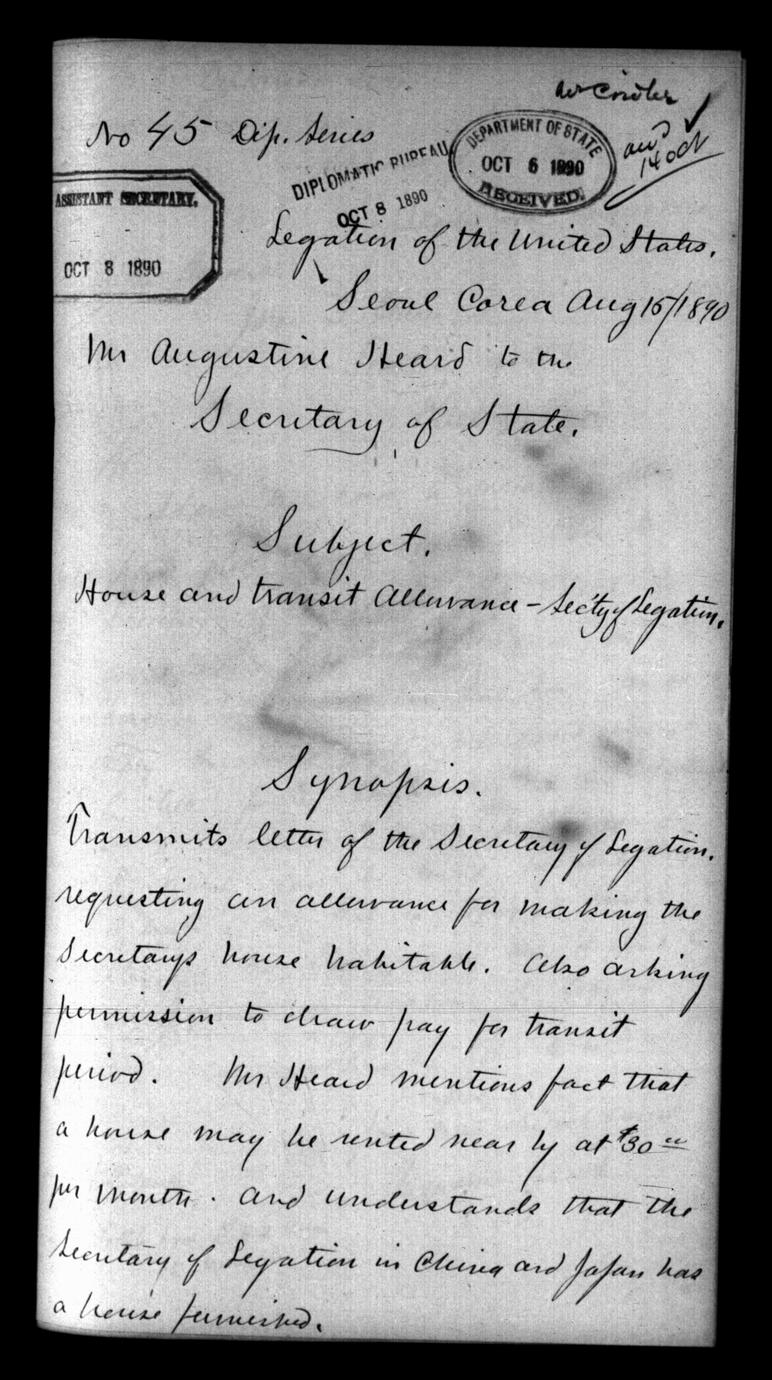 No 45 Dip. Series
DIPLOMATIC BUREAU
OCT 8 1890
DEPARTMENT OF STATE
OCT 6 1890
RECEIVED.
14 oct
ASSISTANT SECRETARY.
OCT 8 1890
Legation of the United States.
Seoul Corea Aug 15/1890
Mr Augustine Heard to the
Secretary of State.
Subject.
House and transit allowance - Sec'ty of Legation.
Synopsis.
Transmits letter of the Secretary of Legation.
requesting an allowance for making the
Secretarys house habitable. Also asking
permission to draw pay for transit
period. Mr Heard mentions fact that
a house may be rented near by at $30 00
per month. and understands that the
Secretary of Legation in China and Japan has
a house furnished.